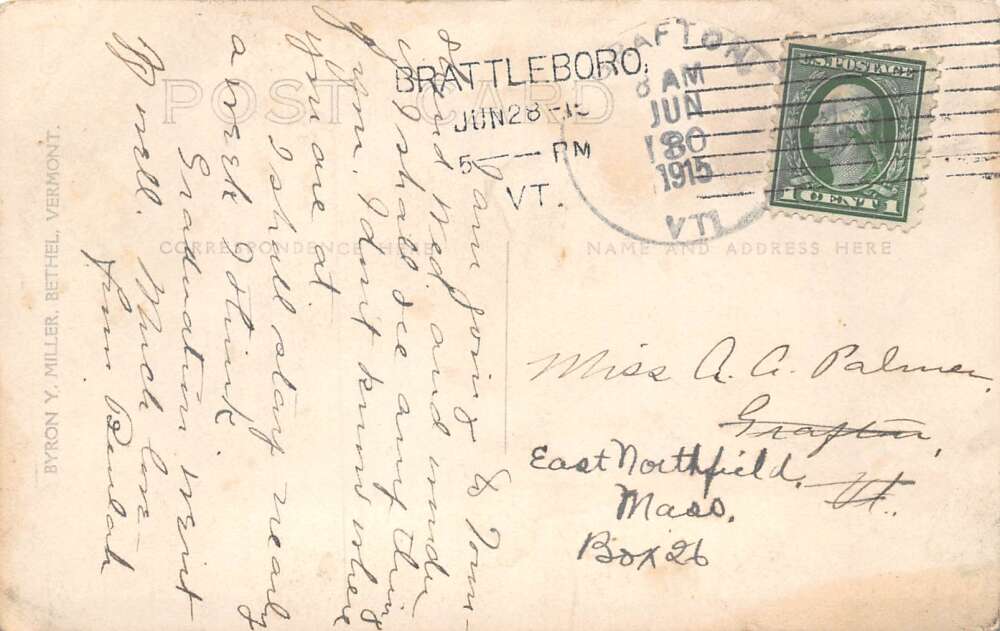 POST CARD
CORRESPONDENCE HERE
NAME AND ADDRESS HERE
BYRON Y. MILLER, BETHEL, VERMONT.
BRATTLEBORO,
JUN 28
5 PM
VT.
GRAFTON
8 AM
JUN
30
1915
VT.
U.S. POSTAGE
1 CENT 1
I am going to Town-
shend Wed. and wonder
if I shall see anything
of you. I don't know where
you are at.
I shall stay nearly
a week I think.
Graduation went
off well. Much love
from Beulah
Miss A. A. Palmer,
Grafton,
Vt.
East Northfield,
Mass.
Box 26